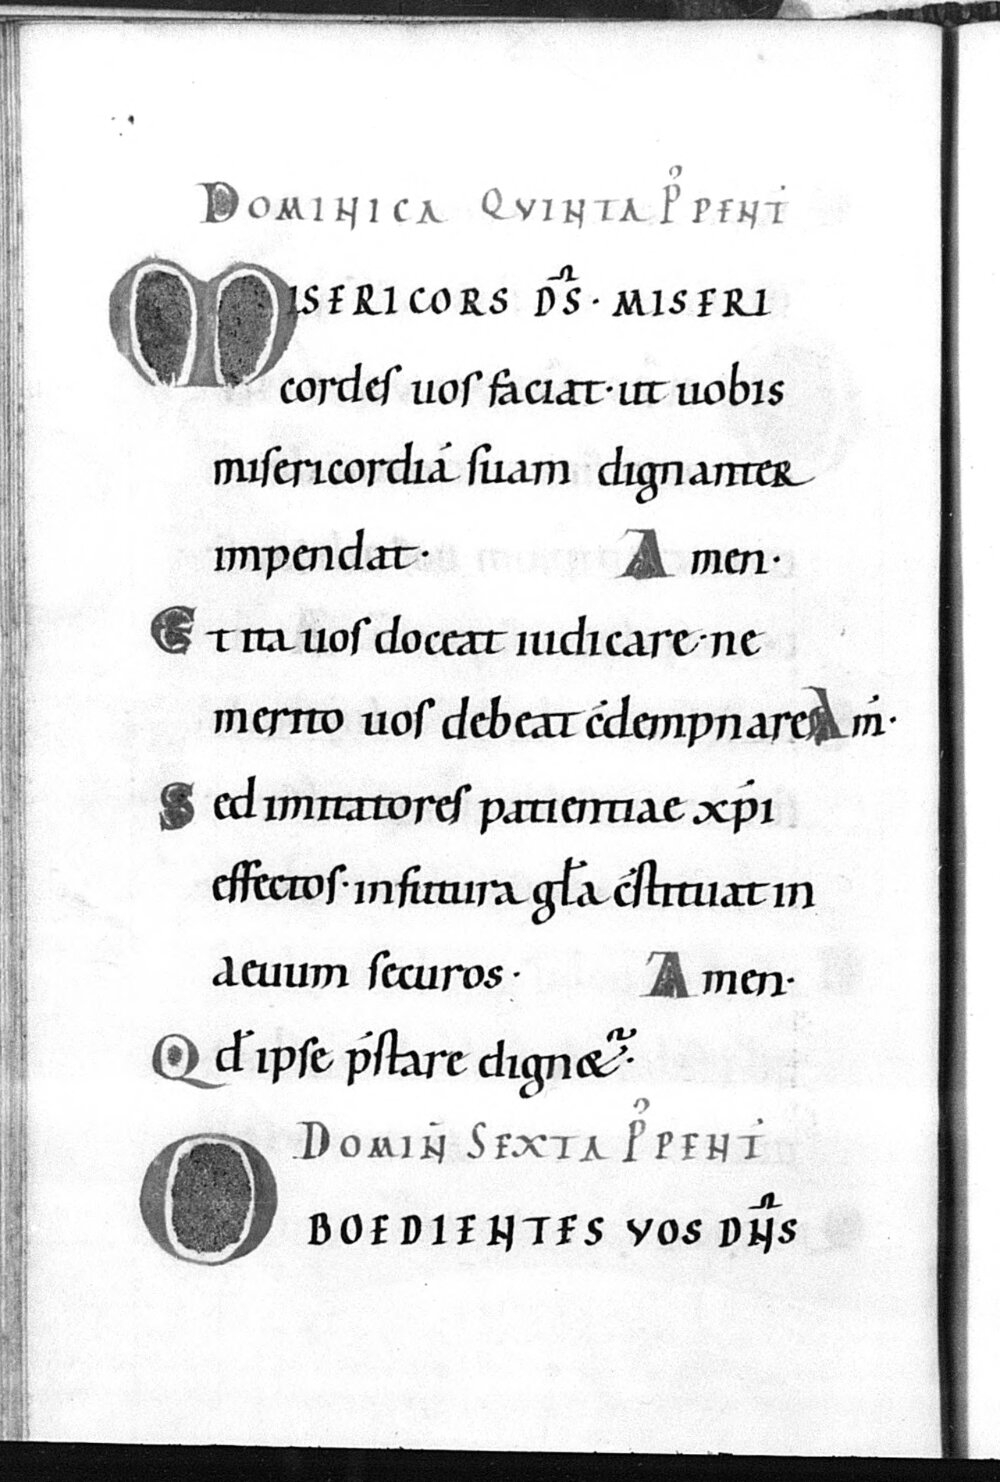 DOMINICA QVINTA P̉ PENṪ
MISERICORS D̅S · MISERI
cordes uos faciat · ut uobis
misericordiá suam dignanter
impendat · Amen ·
Et ita uos doceat iudicare · ne
merito uos debeat c̄dempnare Am̄ ·
Sed imitatores patientiae xp̄i
effectos · in futura gła c̄stituat in
aeuum securos · Amen ·
Qd̄ ipse p̄stare dignetᷣ ·
DOMIN̄ SEXTA P̉ PENṪ
OBOEDIENTES VOS DN̅S